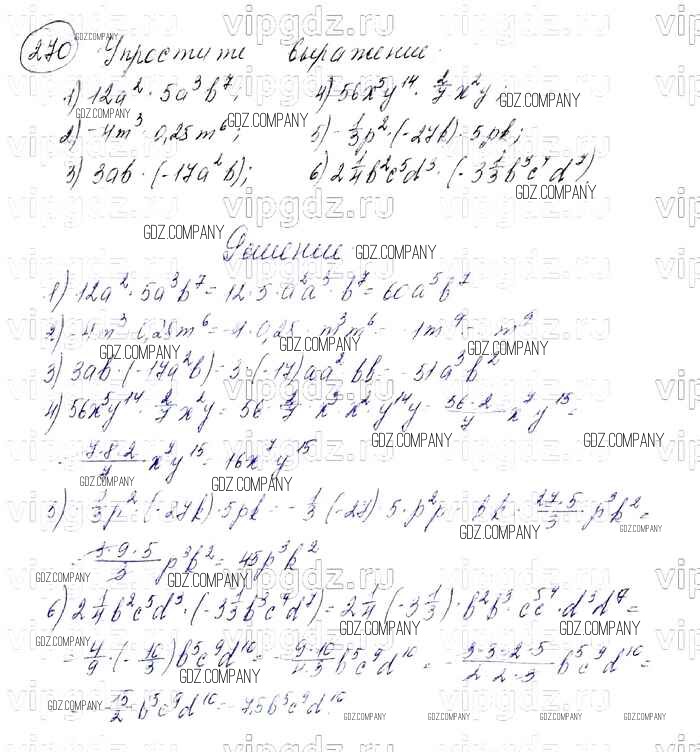 270 Упростите выражение.
1) 12a² · 5a³b⁷; 4) 56x⁵y¹⁴ · 2/7 x²y;
2) -4m³ · 0,25m⁶; 5) -1/3p² · (-27k) · 5pk;
3) 3ab · (-17a²b); 6) 2 1/4 b²c⁵d³ · (-3 1/3 b³c⁴d⁷)
Решение
1) 12a² · 5a³b⁷ = 12 · 5 · a²a³ · b⁷ = 60a⁵b⁷
2) -4m³ · 0,25m⁶ = -4 · 0,25 · m³m⁶ = -1m⁹ = -m⁹
3) 3ab · (-17a²b) = 3 · (-17)aa² · bb = -51a³b²
4) 56x⁵y¹⁴ · 2/7 x²y = 56 · 2/7 · x⁵x² · y¹⁴y = 56·2/7 x⁷y¹⁵ =
= 7·8·2/7 x⁷y¹⁵ = 16x⁷y¹⁵
5) -1/3p² · (-27k) · 5pk = -1/3 · (-27) · 5 · p²p · kk = 27·5/3 p³k² =
= 3·9·5/3 p³k² = 45p³k²
6) 2 1/4 b²c⁵d³ · (-3 1/3 b³c⁴d⁷) = 2 1/4 · (-3 1/3) · b²b³ · c⁵c⁴ · d³d⁷ =
= 4/9 · (-10/3) b⁵c⁹d¹⁰ = -9·10/4·3 b⁵c⁹d¹⁰ = -3·3·2·5/2·2·3 b⁵c⁹d¹⁰ =
= -15/2 b⁵c⁹d¹⁰ = -7,5b⁵c⁹d¹⁰.
vipgdz.ru
GDZ.COMPANY